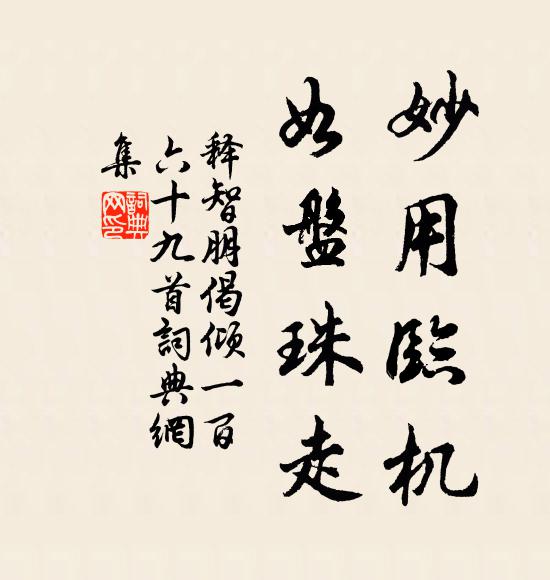 妙用臨机
如盤珠走
释智朋偈倾一百
六十九首詞典網
集
詞典
网印